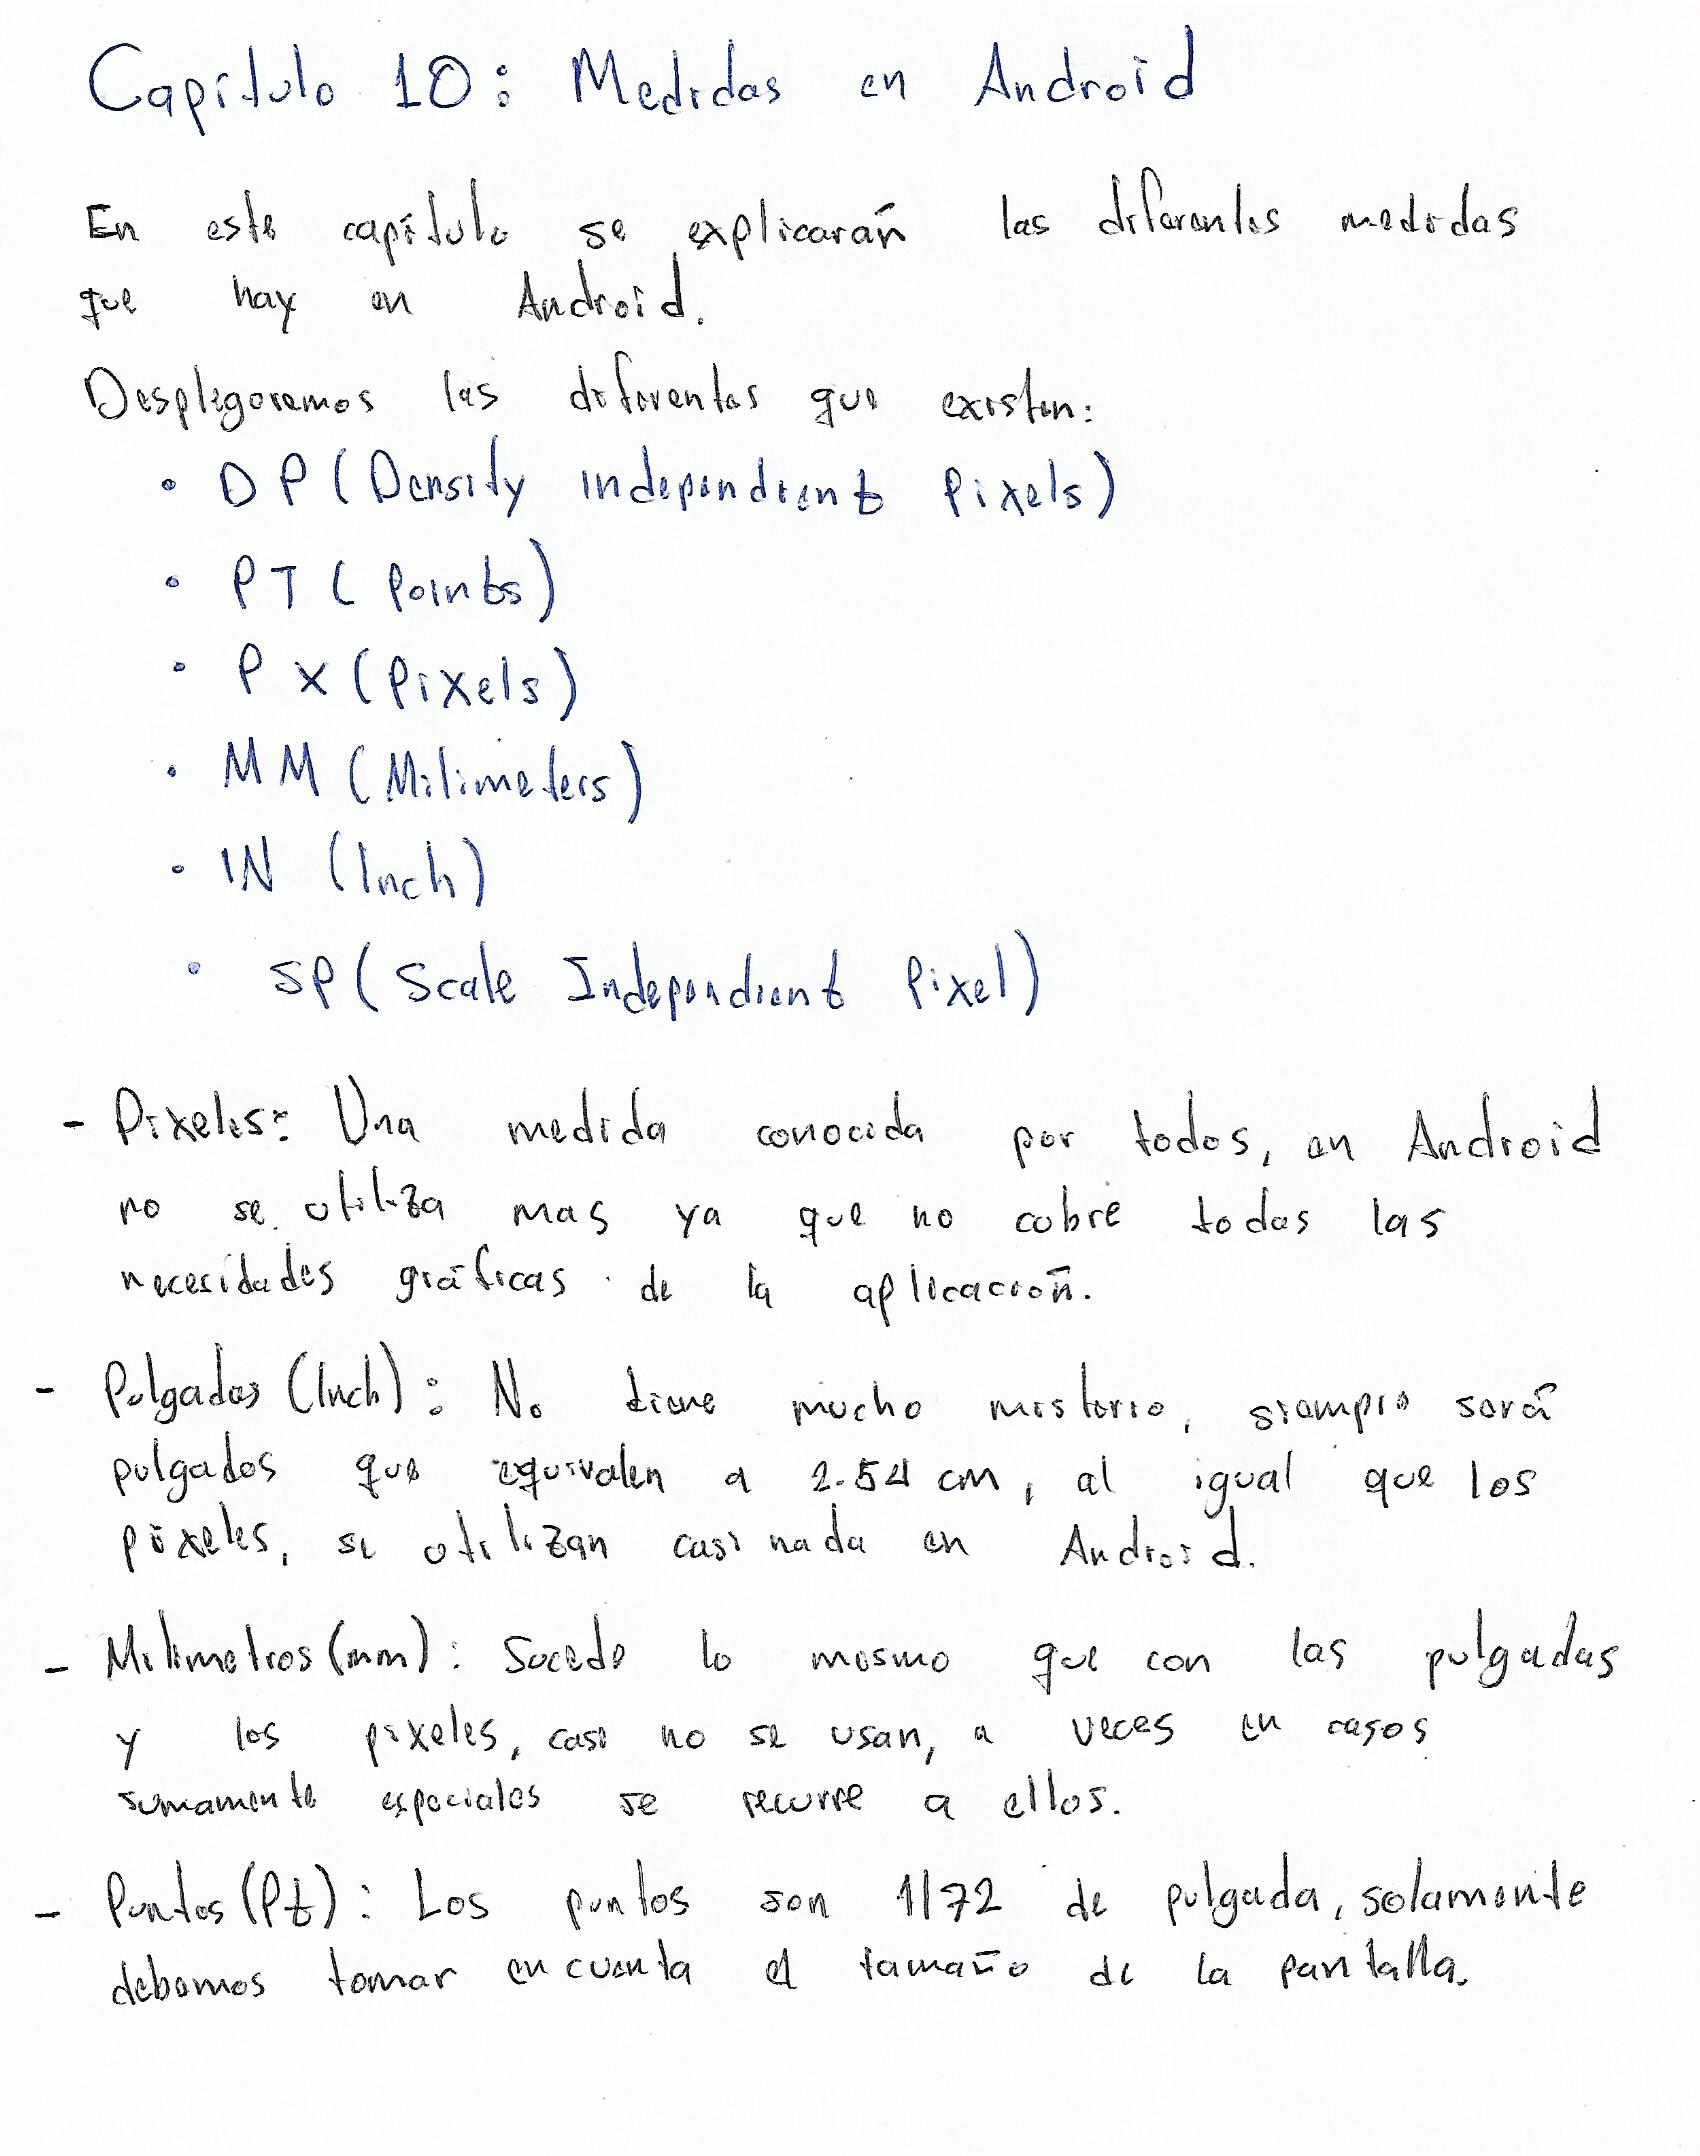 Capítulo 10: Medidas en Android
En este capítulo se explicarán las diferentes medidas
que hay en Android.
Desplegaremos las diferentes que existen:
• DP (Density independient Pixels)
• PT (Points)
• PX (Pixels)
• MM (Milimeters)
• IN (Inch)
• SP (Scale Independient Pixel)
- Pixeles: Una medida conocida por todos, en Android
no se utiliza mas ya que no cubre todas las
necesidades gráficas de la aplicación.
- Pulgadas (Inch): No tiene mucho misterio, siempre será
pulgadas que equivalen a 2.54 cm, al igual que los
píxeles, se utilizan casi nada en Android.
- Milimetros (mm): Sucede lo mismo que con las pulgadas
y los pixeles, casi no se usan, a veces en casos
sumamente especiales se recurre a ellos.
- Puntos (Pt): Los puntos son 1/72 de pulgada, solamente
debemos tomar en cuenta el tamaño de la pantalla.